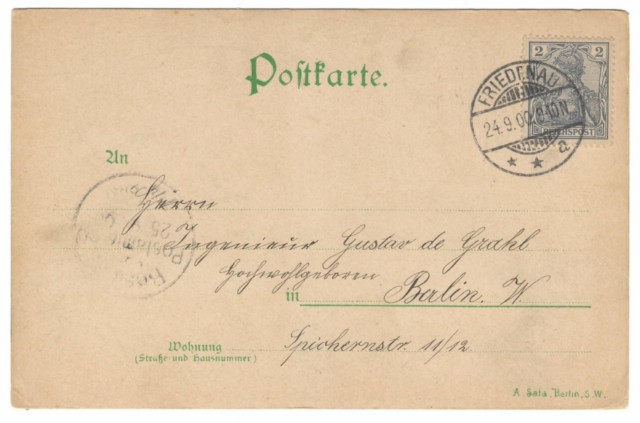 Postkarte.
2 2
REICHSPOST
FRIEDENAU
24.9.00. 8-10 N
* * a
An
Herrn
Ingenieur Gustav de Grahl
Hochwohlgeboren
in Berlin. W.
Wohnung
(Straße und Hausnummer)
Spichernstr. 11/12
25
Postamt
A. Sala, Berlin, S.W.